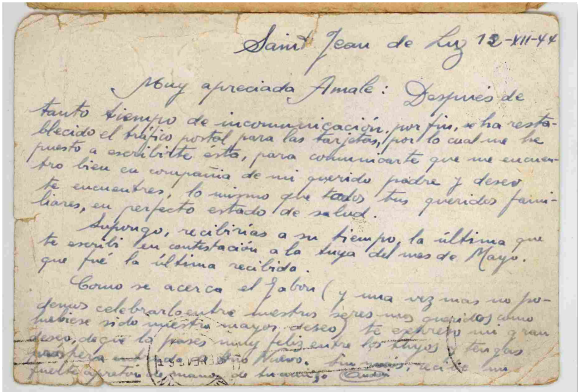 Saint Jean de Luz 12-XII-44
Muy apreciada Amale: Después de
tanto tiempo de incomunicación, por fin, se ha resta-
blecido el tráfico postal para las tarjetas, por lo cual me he
puesto a escribirte esta, para comunicarte que me encuen-
tro bien en compañia de mi querido padre y deseo
te encuentres, lo mismo que todos tus queridos fami-
liares, en perfecto estado de salud.
Supongo, recibirias a su tiempo, la última que
te escribi en contestación a la tuya del mes de Mayo.
que fué la última recibida.
Como se acerca el Gabon (y una vez mas no po-
demos celebrarlo entre nuestros seres mas queridos como
hubiese sido nuestro mayor deseo) te expreso mi gran
deseo, de que la pases muy feliz entre los tuyos y tengas
Año Nuevo. Sin mas, recibe un
fuerte apretón de manos de tu amigo